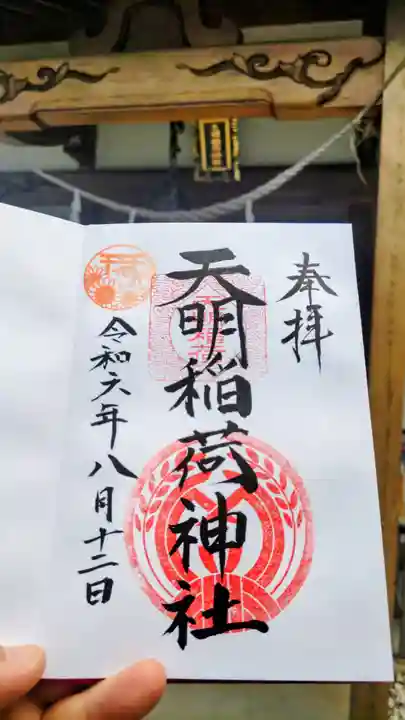 奉拝
天明稲荷神社
令和六年八月十二日